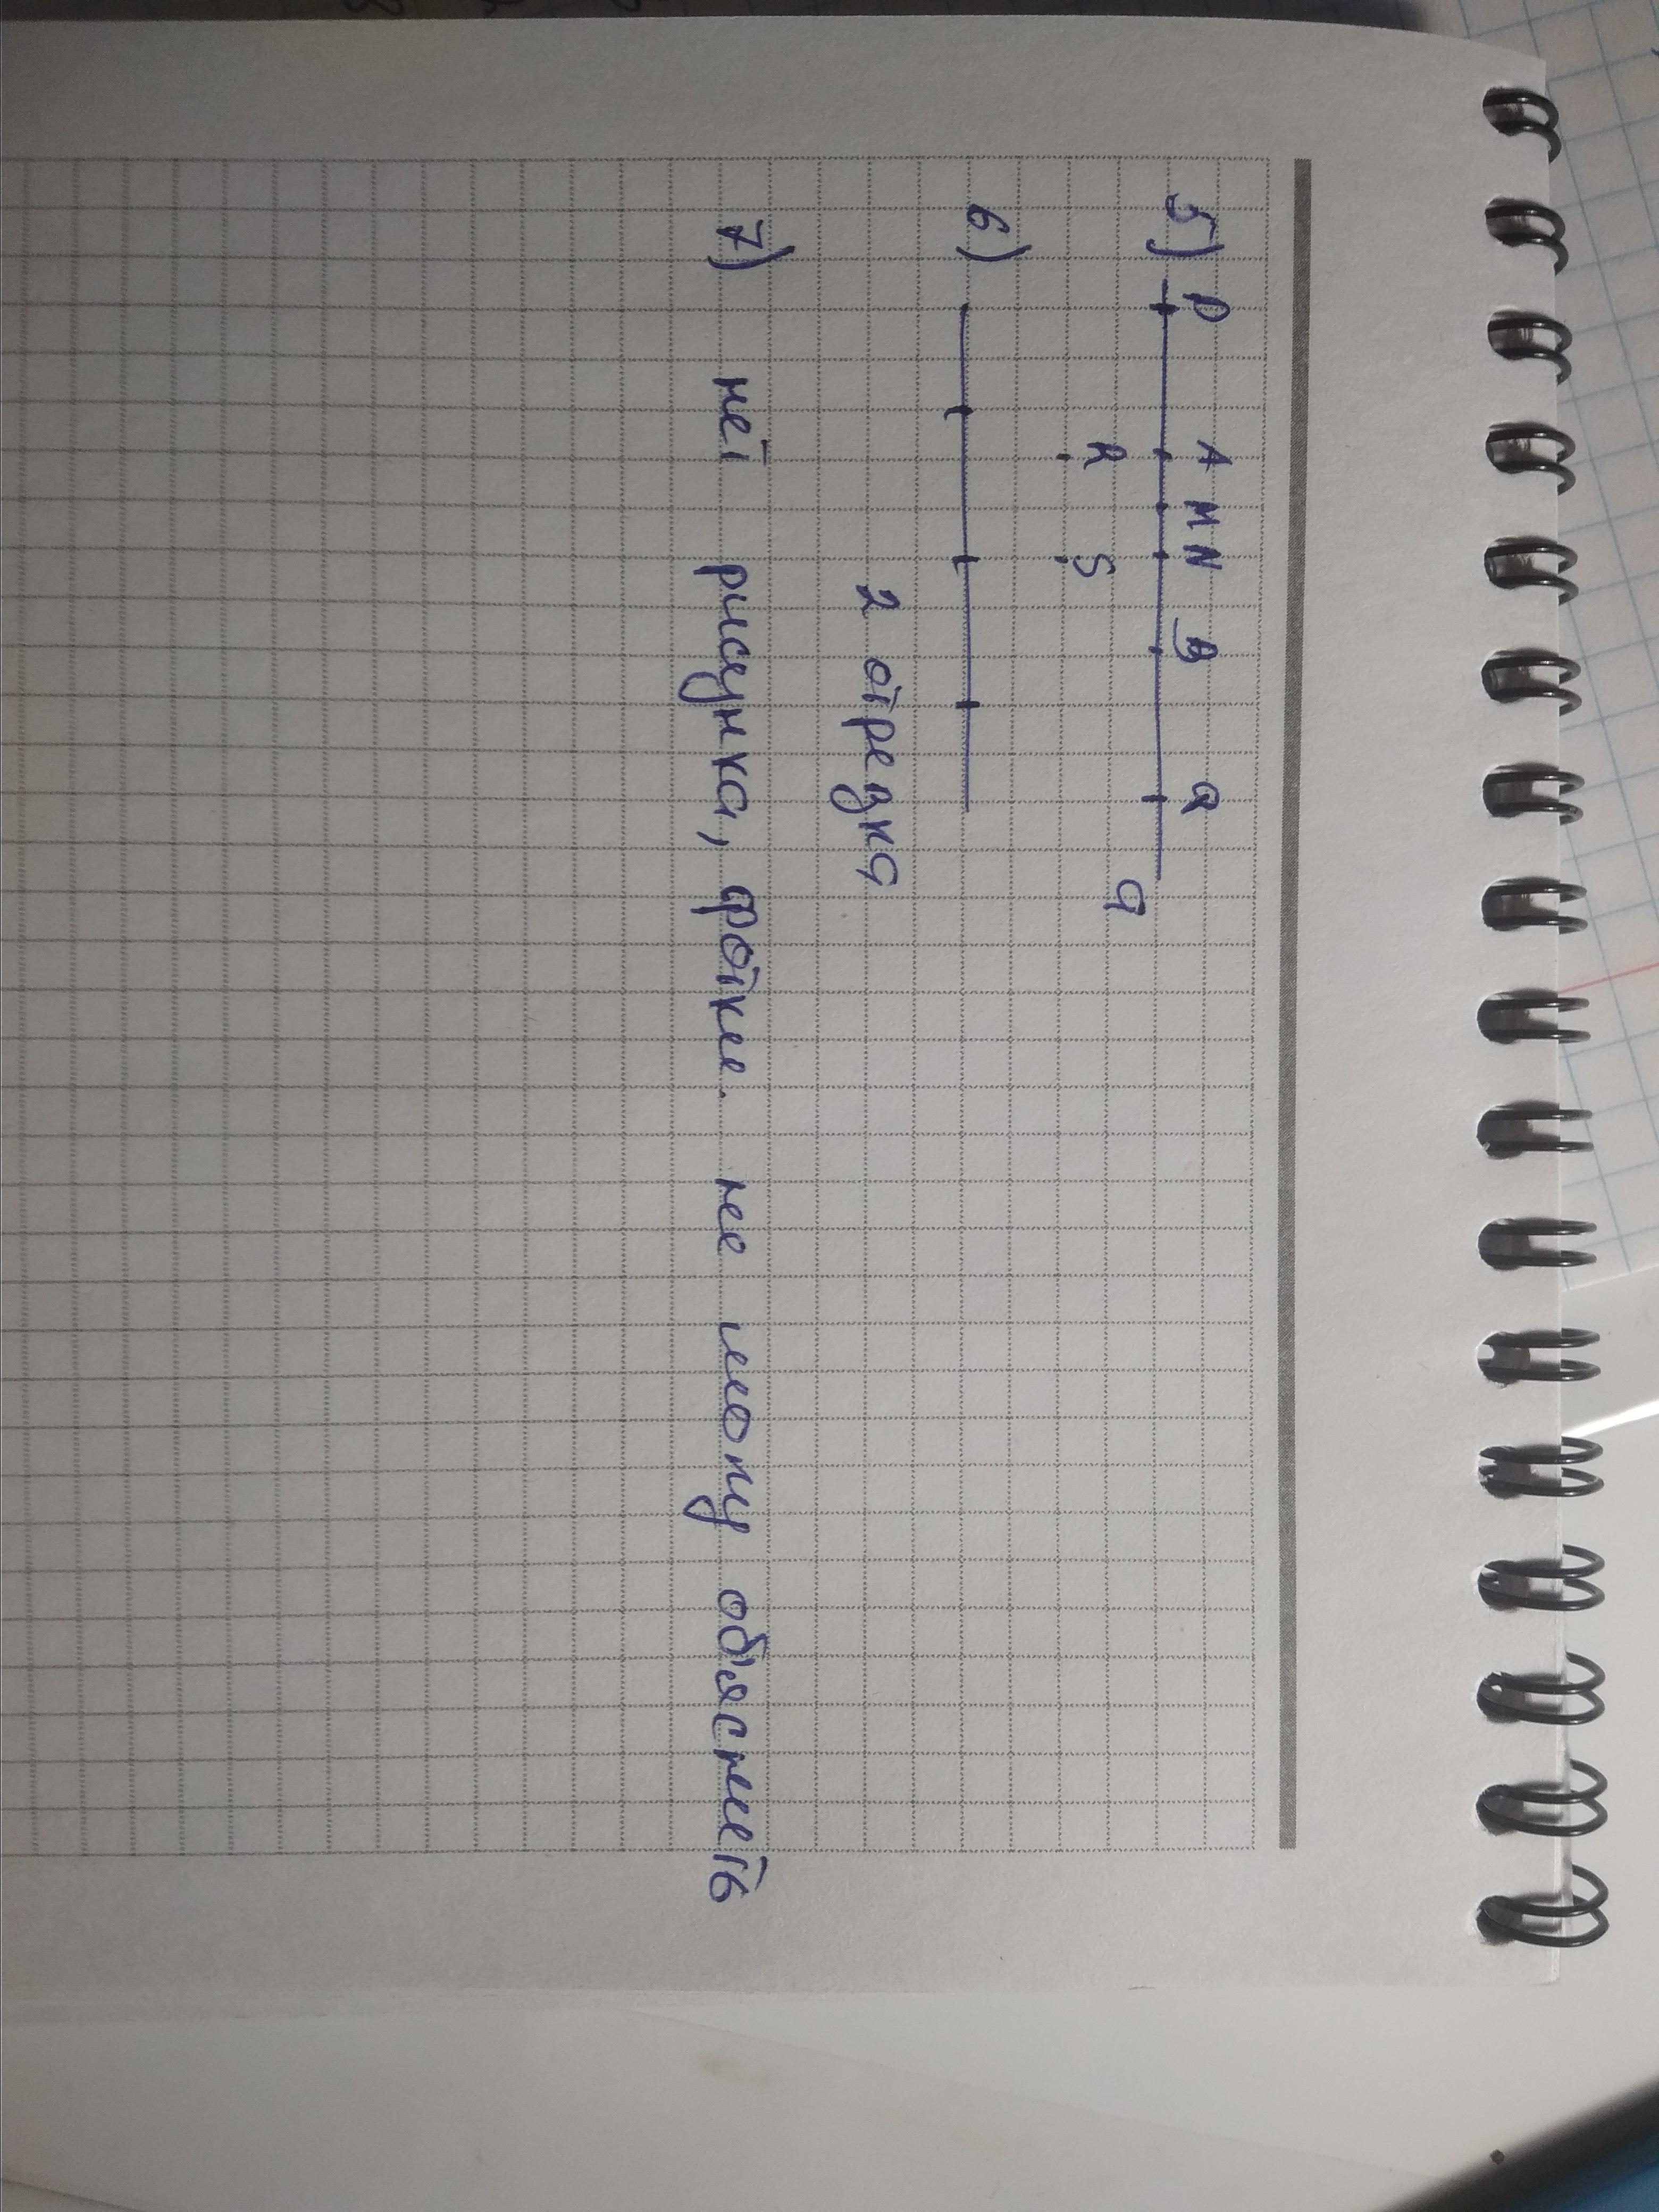 5) P A M N B Q
a
R S
6)
2 отрезка
7) нет рисунка, фотки. не могу обяснить